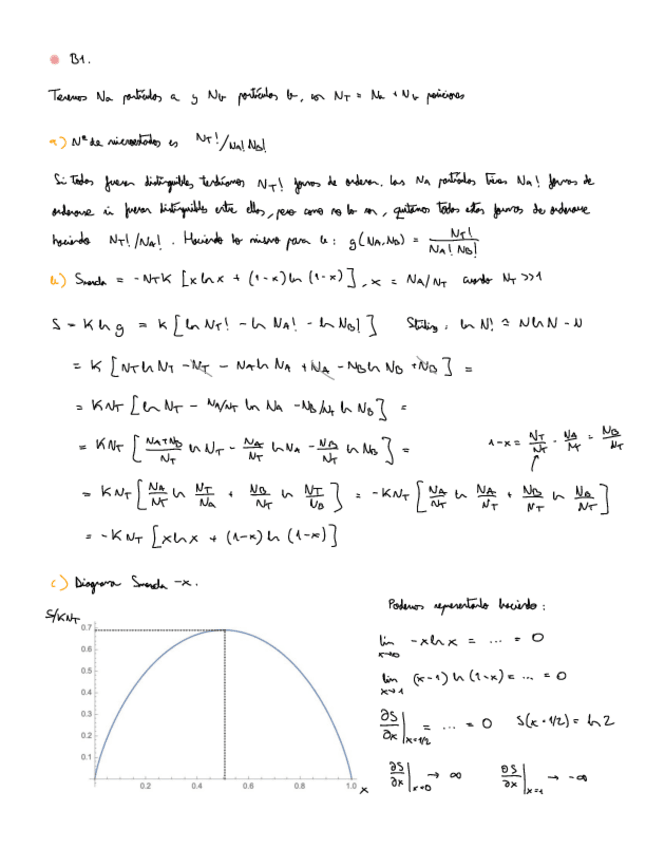 B1.
Tenemos Na partículas a y Nb partículas b, con NT = Na + Nb posiciones
a) Nº de microestados es NT!/Na!Nb!
Si todas fueran distinguibles, tendríamos NT! formas de ordenar. Las Na partículas tienen Na! formas de
ordenarse si fueran distinguibles entre ellas, pero como no lo son, quitamos todas estas formas de ordenarse
haciendo NT!/NA!. Haciendo lo mismo para b: g(NA,NB) = NT! / NA! NB!
b) Smezcla = -NTK [x ln x + (1-x) ln (1-x)], x = NA/NT cuando NT >>1
S = K ln g = K [ln NT! - ln NA! - ln NB!] Stirling: ln N! ≃ N ln N - N
= K [NT ln NT - NT - NA ln NA + NA - NB ln NB + NB] =
= KNT [ln NT - NA/NT ln NA - NB/NT ln NB] =
= KNT [NA+NB/NT ln NT - NA/NT ln NA - NB/NT ln NB] = 1-x = NT/NT - NA/NT = NB/NT
= KNT [NA/NT ln NT/NA + NB/NT ln NT/NB] = -KNT [NA/NT ln NA/NT + NB/NT ln NB/NT]
= -KNT [x ln x + (1-x) ln (1-x)]
c) Diagrama Smezcla -x.
S/KNT
0.7
0.6
0.5
0.4
0.3
0.2
0.1
0.2 0.4 0.6 0.8 1.0 x
Podemos representarlo haciendo:
lim x→0 -x ln x = ... = 0
lim x→1 (x-1) ln (1-x) = ... = 0
∂S/∂x |x=1/2 = ... = 0 S(x=1/2) = ln 2
∂S/∂x |x=0 → ∞ ∂S/∂x |x=1 → -∞